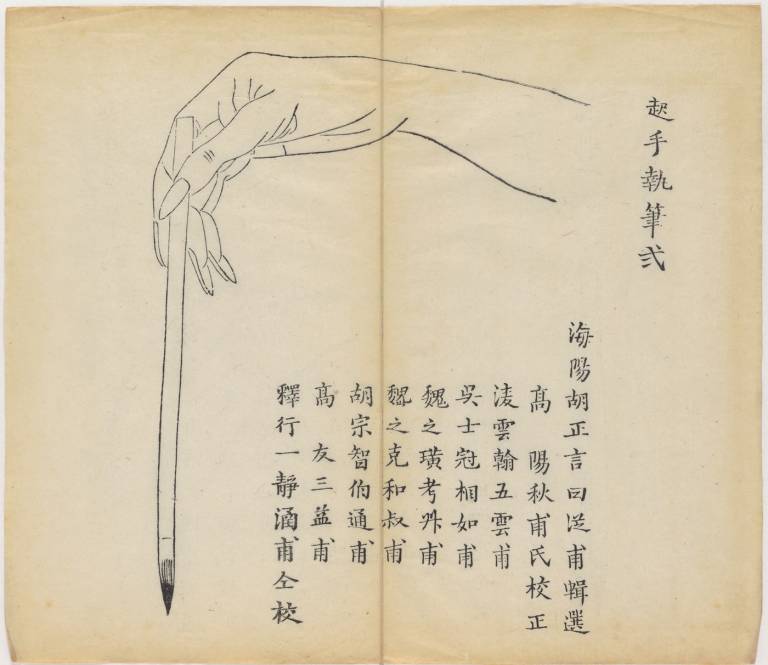 起手執筆弍
海陽胡正言曰从甫輯選
高陽秋甫氏校正
淩雲翰五雲甫
吳士冠相如甫
魏之璜考叔甫
魏之克和叔甫
胡宗智伯通甫
高友三益甫
釋行一靜涵甫仝校